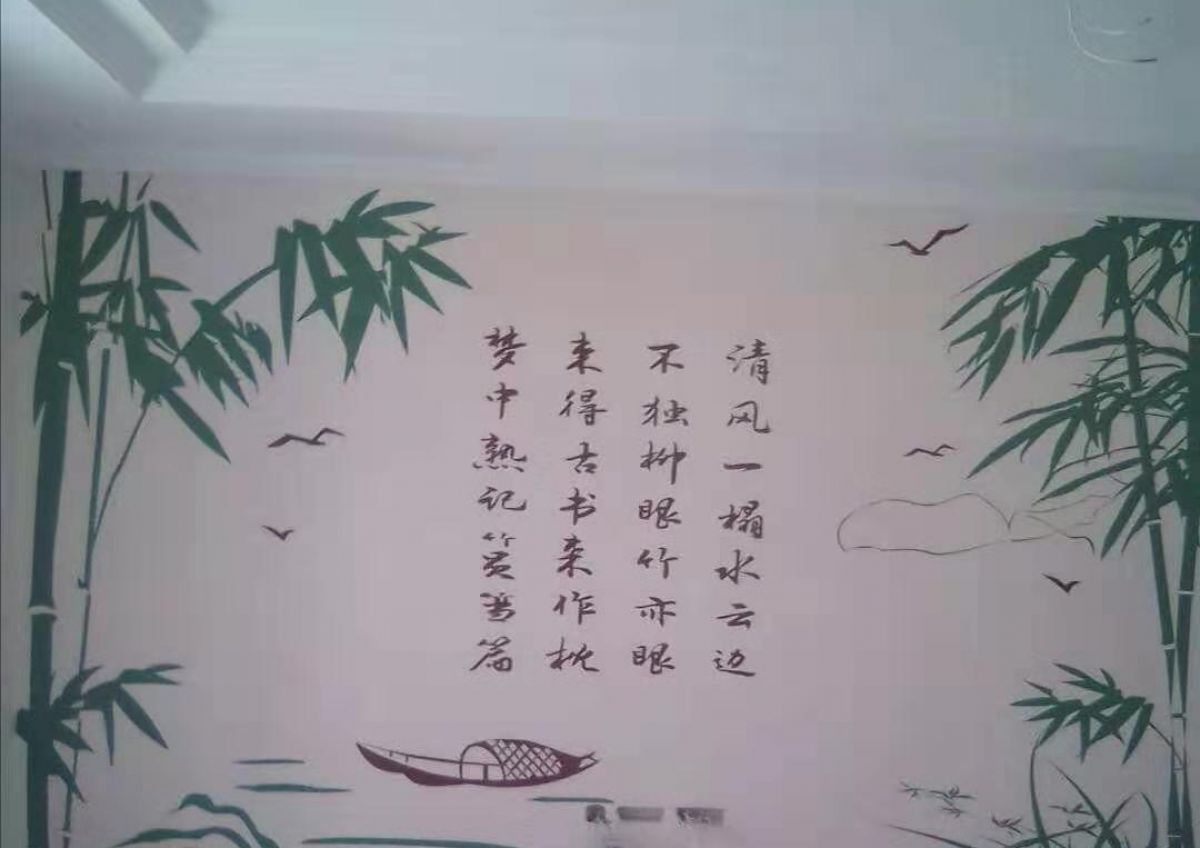 清风一榻水云边
不独柳眠竹亦眠
束得古书来作枕
梦中熟记筼筜篇